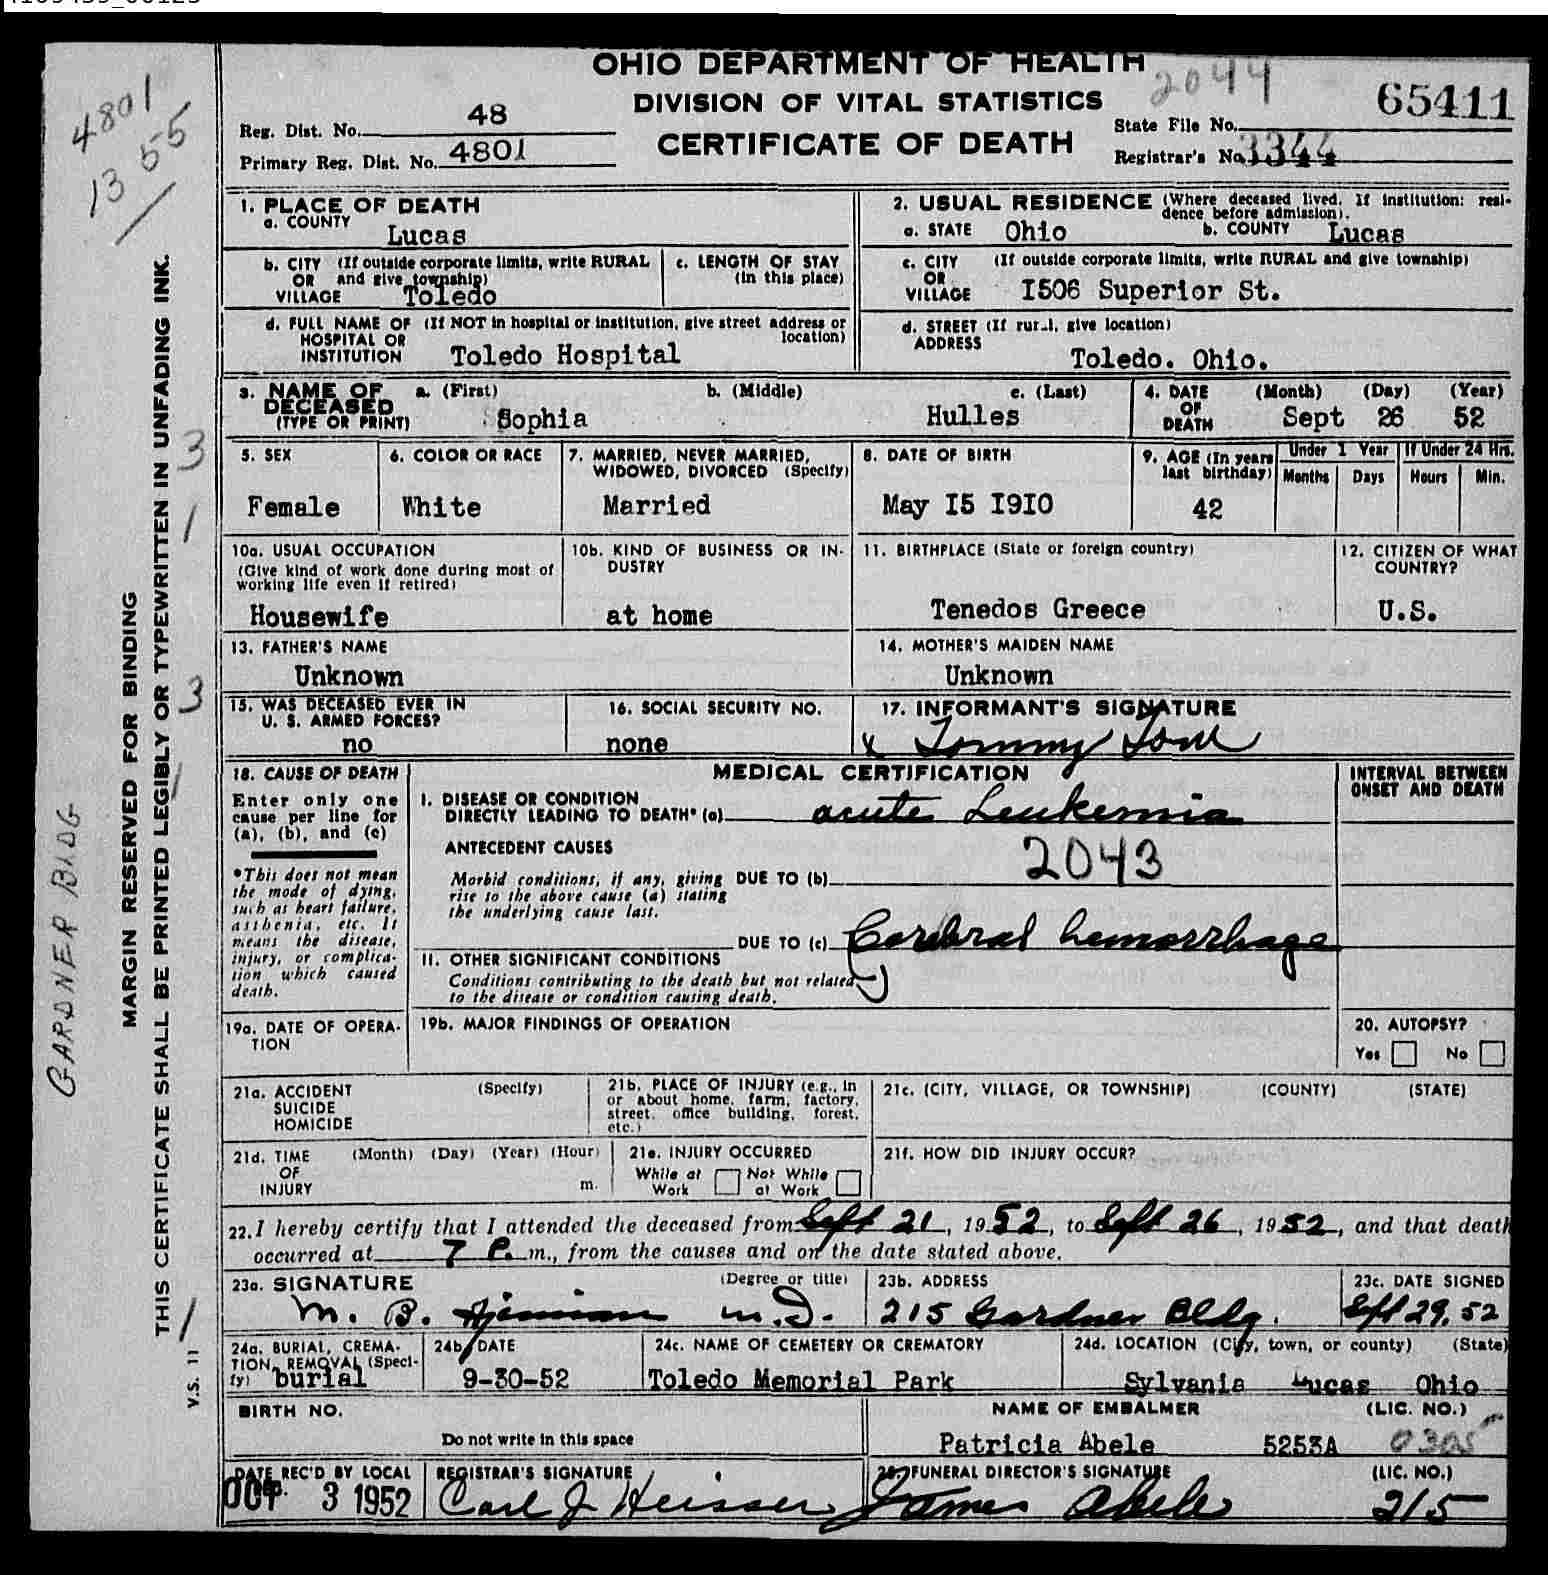 OHIO DEPARTMENT OF HEALTH
DIVISION OF VITAL STATISTICS
CERTIFICATE OF DEATH
2044
65411
Reg. Dist. No. 48
Primary Reg. Dist. No. 4801
State File No.
Registrar's No. 3344
4801
13 55
1. PLACE OF DEATH
a. COUNTY
Lucas
2. USUAL RESIDENCE (Where deceased lived. If institution: resi-
dence before admission).
a. STATE Ohio b. COUNTY Lucas
b. CITY (If outside corporate limits, write RURAL
OR and give township)
VILLAGE Toledo
c. LENGTH OF STAY
(in this place)
c. CITY (If outside corporate limits, write RURAL and give township)
OR
VILLAGE I506 Superior St.
d. FULL NAME OF (If NOT in hospital or institution, give street address or
HOSPITAL OR location)
INSTITUTION Toledo Hospital
d. STREET (If rural, give location)
ADDRESS
Toledo. Ohio.
3. NAME OF DECEASED
(TYPE OR PRINT)
a. (First) b. (Middle) c. (Last)
Sophia Hulles
4. DATE OF DEATH
(Month) (Day) (Year)
Sept 26 52
5. SEX
Female
6. COLOR OR RACE
White
7. MARRIED, NEVER MARRIED,
WIDOWED, DIVORCED (Specify)
Married
8. DATE OF BIRTH
May I5 I9I0
9. AGE (In years
last birthday)
42
Under 1 Year
Months Days
If Under 24 Hrs.
Hours Min.
10a. USUAL OCCUPATION
(Give kind of work done during most of
working life even if retired)
Housewife
10b. KIND OF BUSINESS OR IN-
DUSTRY
at home
11. BIRTHPLACE (State or foreign country)
Tenedos Greece
12. CITIZEN OF WHAT
COUNTRY?
U.S.
13. FATHER'S NAME
Unknown
14. MOTHER'S MAIDEN NAME
Unknown
15. WAS DECEASED EVER IN
U. S. ARMED FORCES?
no
16. SOCIAL SECURITY NO.
none
17. INFORMANT'S SIGNATURE
x Tommy
18. CAUSE OF DEATH
Enter only one
cause per line for
(a), (b), and (c)
*This does not mean
the mode of dying,
such as heart failure,
asthenia, etc. It
means the disease,
injury, or complica-
tion which caused
death.
MEDICAL CERTIFICATION
INTERVAL BETWEEN
ONSET AND DEATH
I. DISEASE OR CONDITION
DIRECTLY LEADING TO DEATH* (a) acute Leukemia
ANTECEDENT CAUSES
2043
Morbid conditions, if any, giving DUE TO (b)
rise to the above cause (a) stating
the underlying cause last.
DUE TO (c) Cerebral hemorrhage
II. OTHER SIGNIFICANT CONDITIONS
Conditions contributing to the death but not related
to the disease or condition causing death.
19a. DATE OF OPERA-
TION
19b. MAJOR FINDINGS OF OPERATION
20. AUTOPSY?
Yes No
21a. ACCIDENT (Specify)
SUICIDE
HOMICIDE
21b. PLACE OF INJURY (e.g., in
or about home, farm, factory,
street, office building, forest,
etc.)
21c. (CITY, VILLAGE, OR TOWNSHIP) (COUNTY) (STATE)
21d. TIME (Month) (Day) (Year) (Hour)
OF
INJURY m.
21e. INJURY OCCURRED
While at Work Not While at Work
21f. HOW DID INJURY OCCUR?
22. I hereby certify that I attended the deceased from Sept 21, 1952, to Sept 26, 1952, and that death
occurred at 7 P. m., from the causes and on the date stated above.
23a. SIGNATURE (Degree or title)
M. B. M.D.
23b. ADDRESS
215 Gardner Bldg.
23c. DATE SIGNED
Sept 29, 52
24a. BURIAL, CREMA-
TION, REMOVAL (Speci-
fy) burial
24b. DATE
9-30-52
24c. NAME OF CEMETERY OR CREMATORY
Toledo Memorial Park
24d. LOCATION (City, town, or county) (State)
Sylvania Lucas Ohio
BIRTH NO.
Do not write in this space
NAME OF EMBALMER (LIC. NO.)
Patricia Abele 5253A
DATE REC'D BY LOCAL
OCT 3 1952
REGISTRAR'S SIGNATURE
Carl J Heisser
25. FUNERAL DIRECTOR'S SIGNATURE (LIC. NO.)
James Abele 215
MARGIN RESERVED FOR BINDING
THIS CERTIFICATE SHALL BE PRINTED LEGIBLY OR TYPEWRITTEN IN UNFADING INK.
GARDNER BLDG
3
1
3
1
1
V.S. 11